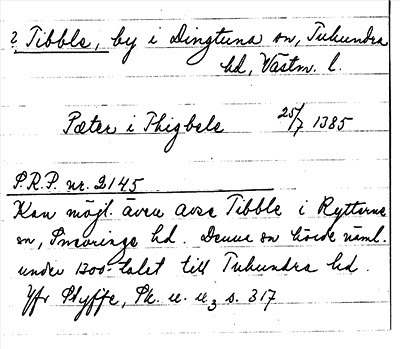 ? Tibble, by i Dingtuna sn, Tuhundra
hd, Västm. l.
Pæter i Thigbele 25/7 1385
P.R.P. nr. 2145
Kan möjl. även avse Tibble i Rytterne
sn, Snevringe hd. Denna sn hörde näml.
under 1300-talet till Tuhundra hd.
Jfr Styffe, Sk. u. u3 s. 317